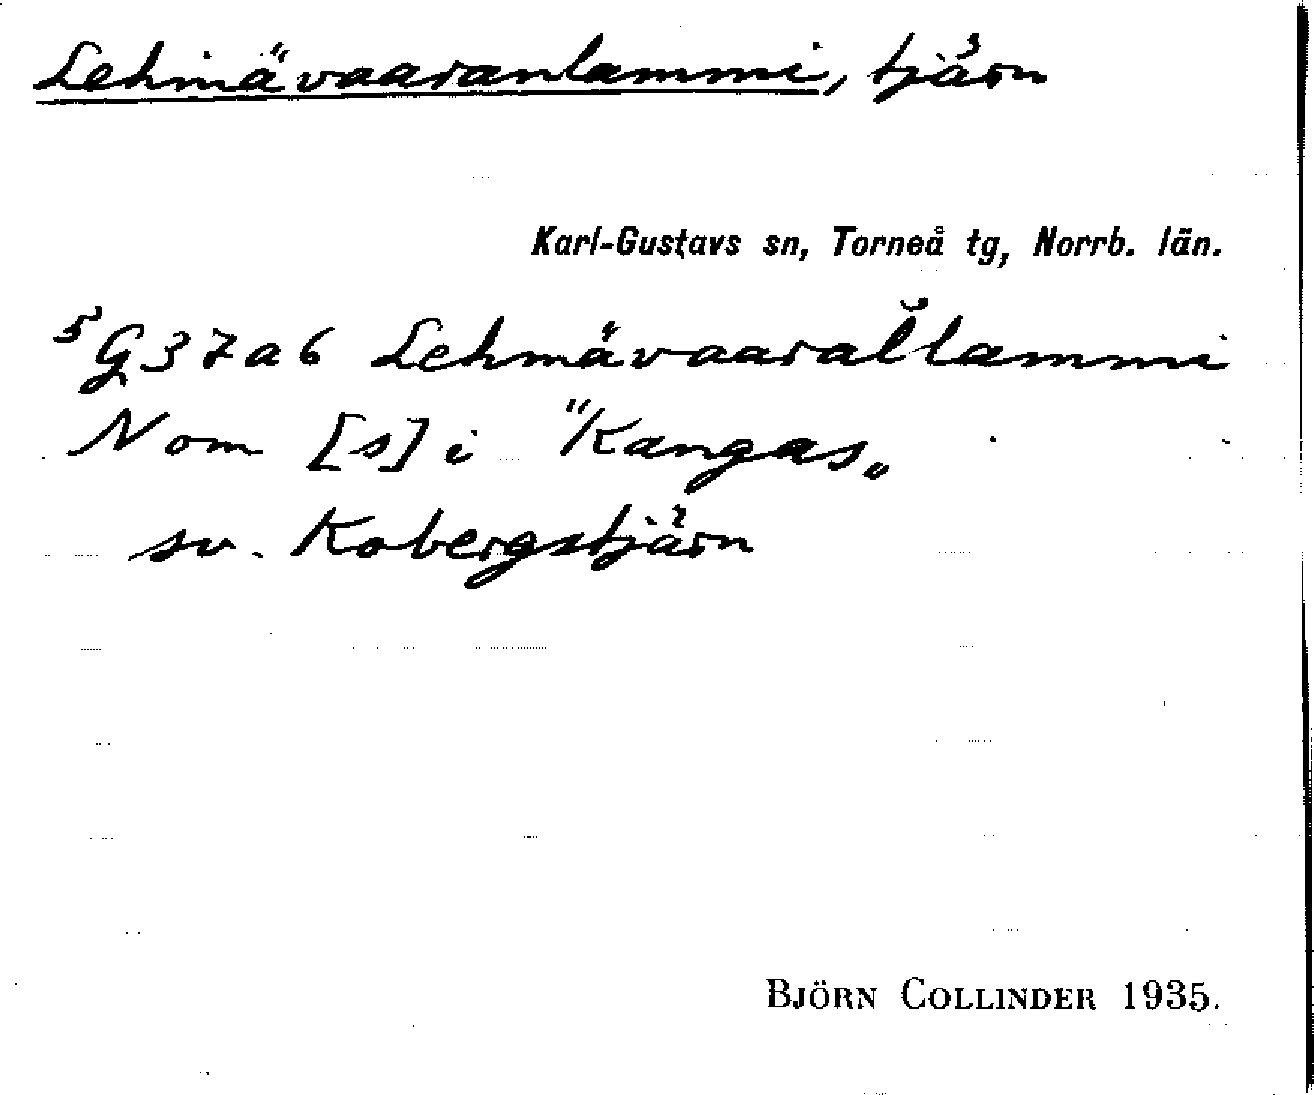 Lehmävaaranlammi, tjärn
Karl-Gustavs sn, Torneå tg, Norrb. län.
5 G37a6 Lehmävaaral̆lammi
Nom [s] i "Kangas„
sv. Kobergstjärn
BJÖRN COLLINDER 1935.